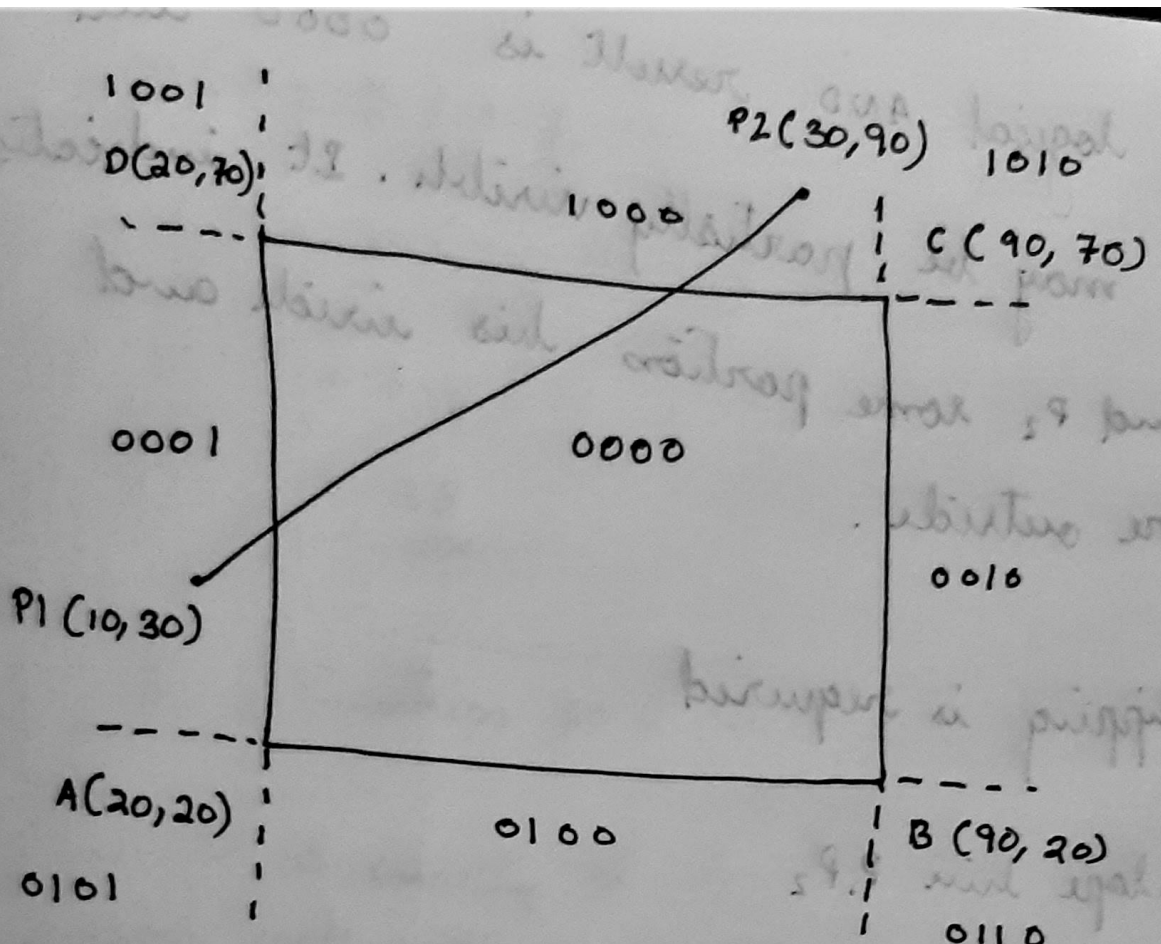 1001
P2(30,90)
D(20,70)
1010
1000
C(90, 70)
0001
0000
0010
P1(10,30)
A(20,20)
0100
B(90, 20)
0101
0110